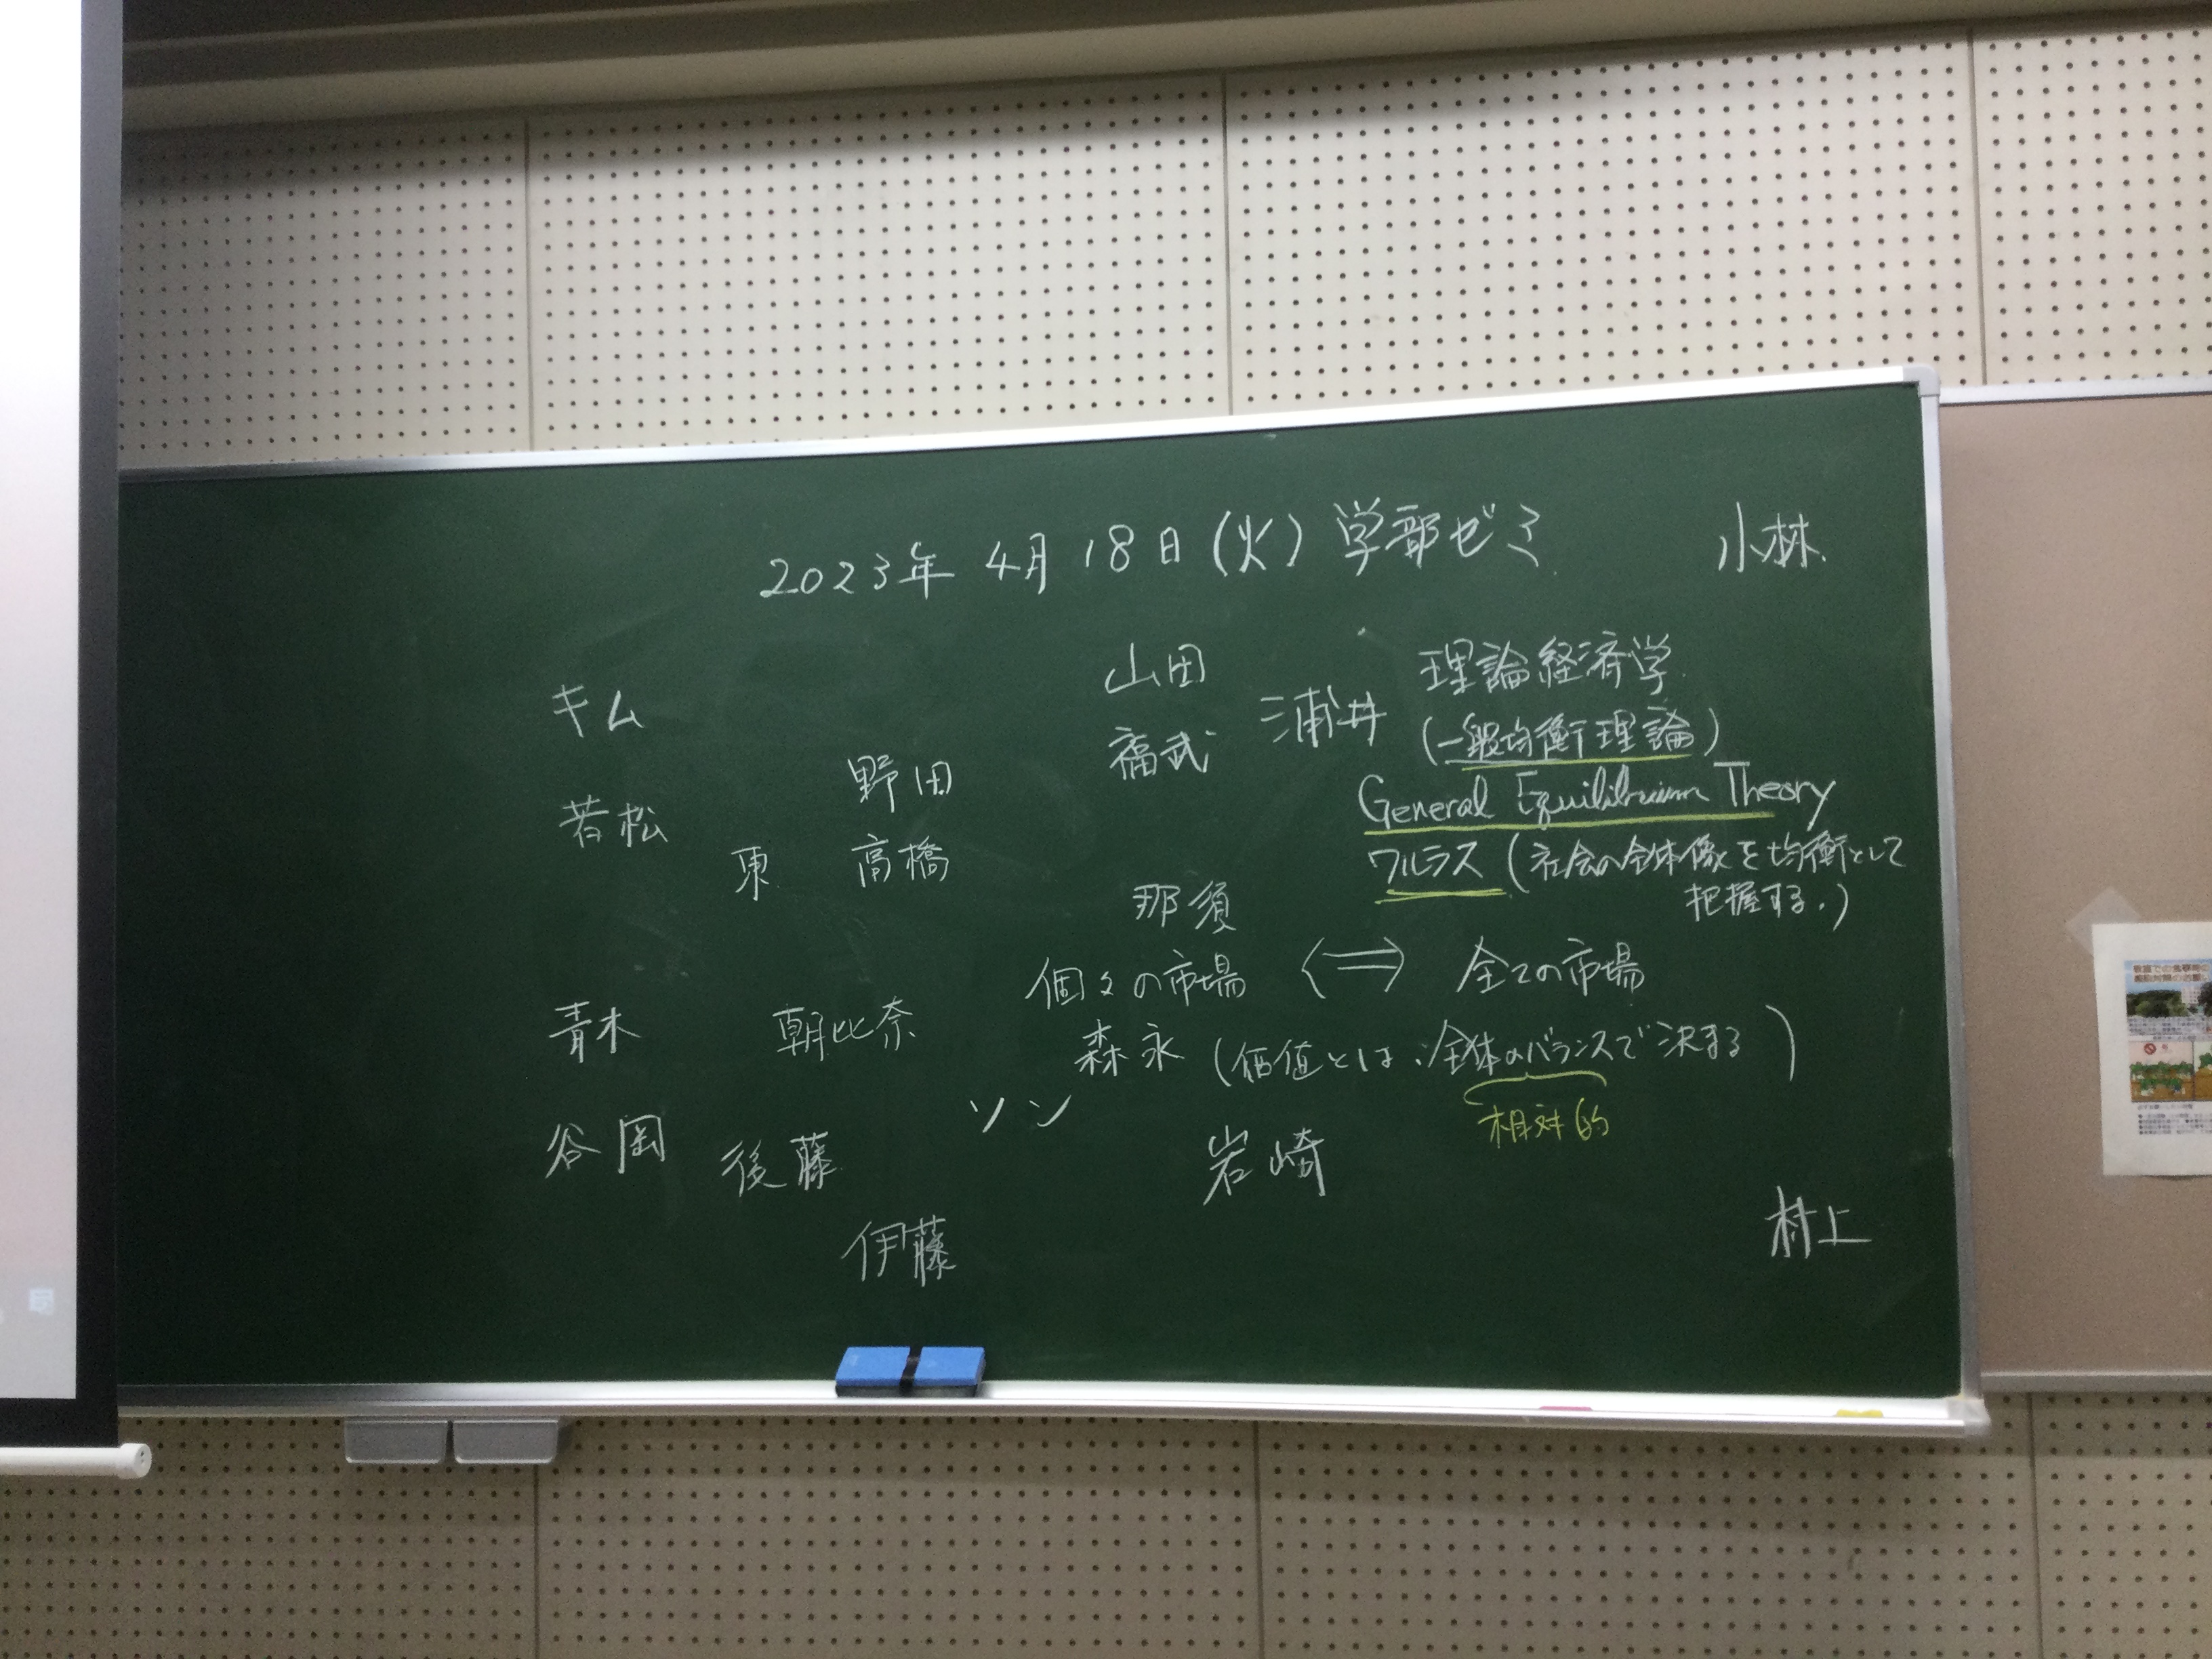 2023年 4月 18日 (火) 学部ゼミ
小林
山田
理論経済学
キム
浦井
(一般均衡理論)
福武
野田
General Equilibrium Theory
若松
東
高橋
ワルラス (社会の全体像を均衡として
把握する.)
那須
個々の市場 ⟺ 全ての市場
青木
朝比奈
森永
(価値とは、全体のバランスで決まる)
ソン
相対的
谷岡
後藤
岩崎
伊藤
村上